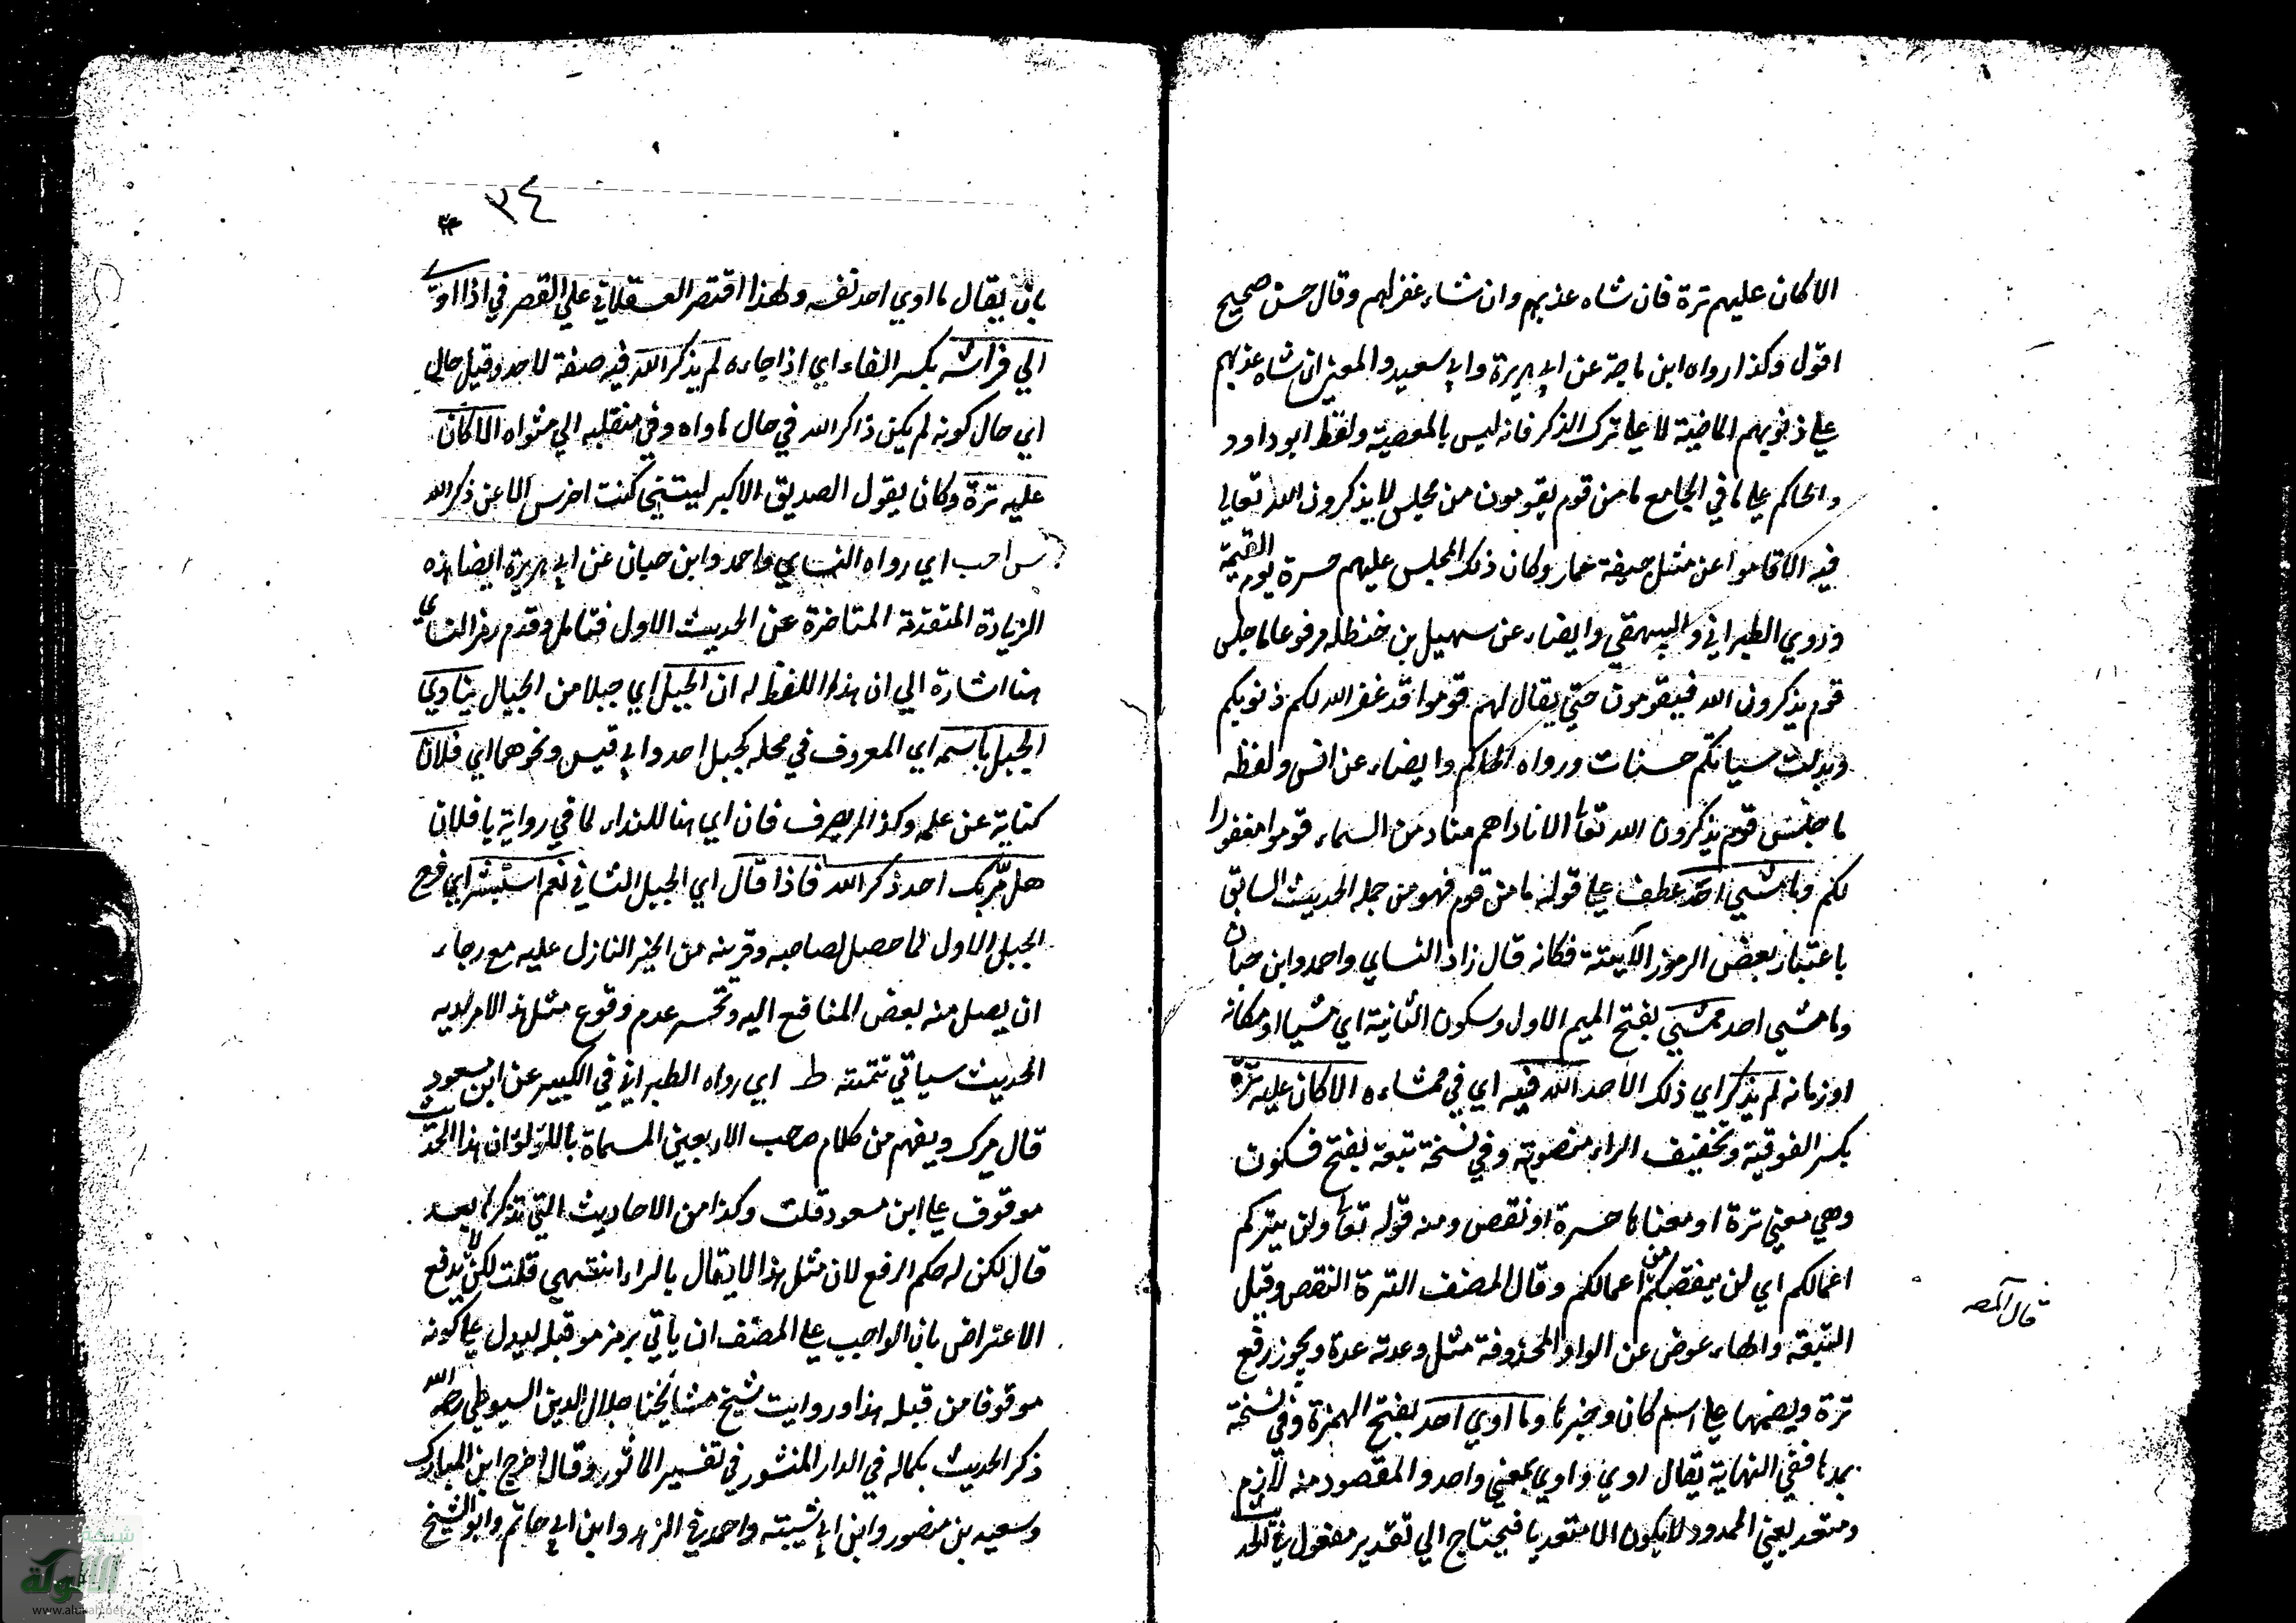 الا كان عليهم ترة فان شاء عذبهم وان شاء غفر لهم وقال حسن صحيح
اقول وكذا رواه ابن ماجة عن ابي هريرة وابي سعيد والمعني ان شاء عذبهم
علي ذنوبهم الماضية لا علي ترك الذكر فانه ليس بالمعصية ولفظ ابو داود
والحاكم علي ما في الجامع ما من قوم يقومون من مجلس لا يذكرون الله تعالي
فيه الا قاموا عن مثل جيفة حمار وكان ذلك المجلس عليهم حسرة يوم القيمة
وروي الطبراني والبيهقي والضياء عن سهيل بن حنظله مرفوعا ما جلس
قوم يذكرون الله فيقومون حتي يقال لهم قوموا قد غفر الله لكم ذنوبكم
وبدلت سياتكم حسنات ورواه الحاكم والضياء عن انس ولفظه
ما جلس قوم يذكرون الله تعا الا ناداهم مناد من السماء قوموا مغفورا
لكم وما مشي احد عطف علي قوله ما من قوم فهو من جمله الحديث السابق
باعتبار بعض الرموز الآتية فكانه قال زاد النساي واحمد وابن حبان
وما مشي احد ممشي بفتح الميم الاول وسكون الثانية اي مشيا او مكانه
او زمانه لم يذكر اي ذلك الاحد الله فيه اي في ممشاءه الا كان عليه ترة
بكسر الفوقية وتخفيف الراء منصوبة وفي نسخة تبعة بفتح فسكون
وهي معني ترة او معناها حسرة او نقص ومنه قوله تعا ولن يتركم
اعمالكم اي لن ينقصكم من اعمالكم وقال المصنف الترة النقص وقيل
التبعة والهاء عوض عن الواو المحذوفة مثل وعدته عدة ويجوز رفع
ترة ونصبها علي اسم كان وخبرها وما اوي احد بفتح الهمزة وفي نسخة
بمدها ففي النهاية يقال اوي واوي بمعني واحد والمقصود منه لازم
ومتعد يعني الممدود لا يكون الا متعديا فيحتاج الي تقدير مفعول في الحديث
قال المصـ
٣٤
بان يقال ما اوي احد نفسه ولهذا اقتصر العسقلاني علي القصر في اذا اوي
الي فراشه بكسر الفاء اي اذا جاءه لم يذكر الله فيه صفة لاحد وقيل حال
اي حال كونه لم يكن ذاكر الله في حال ماواه وفي منقلبه الي مثواه الا كان
عليه ترة وكان يقول الصديق الاكبر ليتني كنت اخرس الا عن ذكر الله
س احب اي رواه النساي واحمد وابن حبان عن ابي هريرة ايضا هذه
الزيادة المتقدمة المتاخرة عن الحديث الاول فتامل وقدم رمز النساي
هنا اشارة الي ان هذا اللفظ له ان الجبل اي جبلا من الجبال ينادي
الجبل باسمه اي المعروف في محله كجبل احد وابي قبيس ونحوهما اي فلان
كناية عن علمه وكذا لم يصرف فان اي هنا للنداء لما في رواية يا فلان
هل مر بك احد ذكر الله فاذا قال اي الجبل الثاني نعم استبشر اي فرح
الجبل الاول لما حصل لصاحبه وقرينه من الخير النازل عليه مع رجاء
ان يصل منه بعض المنافع اليه وتحسر عدم وقوع مثل هذا الامر لديه
الحديث سياتي تتمته ط اي رواه الطبراني في الكبير عن ابن مسعود
قال ميرك ويفهم من كلام صحب الاربعين المسماة باللؤلؤ ان هذا الحديث
موقوف علي ابن مسعود قلت وكذا من الاحاديث التي تذكر بعد
قال لكن له حكم الرفع لان مثل هذا لا يقال بالراء انتهي قلت لكن لا يدفع
الاعتراض بان الواجب علي المصنف ان ياتي برمز مو قبله ليدل علي كونه
موقوفا من قبله هذا ورايت شيخ مشايخنا جلال الدين السيوطي رحمه الله
ذكر الحديث بكماله في الدار المنثور في تفسير الماثور وقال اخرج ابن المبارك
وسعيد بن منصور وابن ابي شيبته واحمد في الزهد وابن ابي حاتم وابو الشيخ
شبكة
الألوكة
www.alukah.net